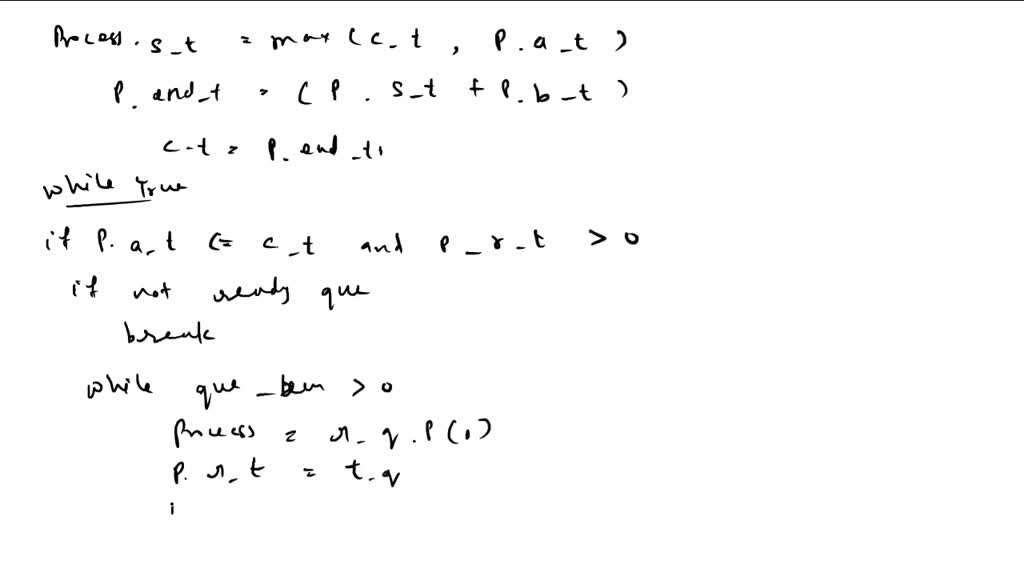 Process.s_t = max (c_t, P.a_t)
P.end_t = (P.s_t + P.b_t)
c-t = P.end_t,
while True
if P.a_t (= c_t and P_r_t > 0
if not ready que
break
while que _ > 0
Process = r_q.P(0)
P.r_t = t_q
i